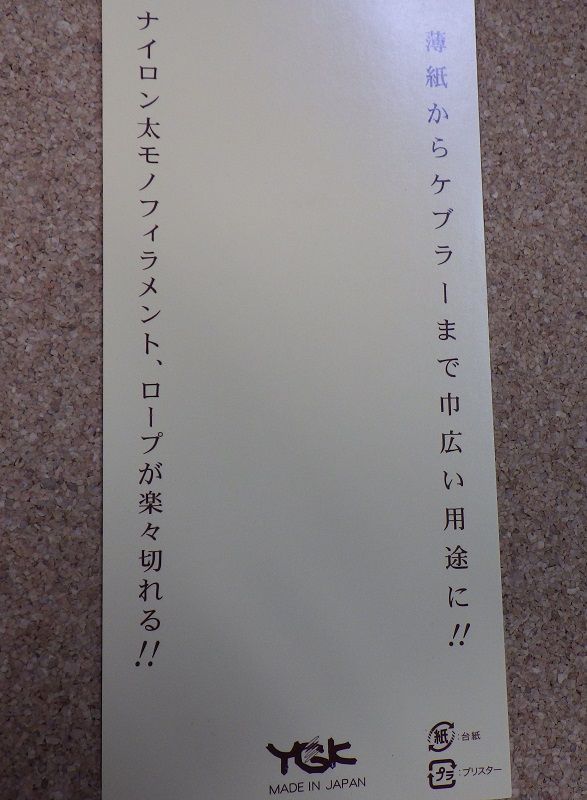 薄紙からケブラーまで巾広い用途に!!
ナイロン太モノフィラメント、ロープが楽々切れる!!
YGK
MADE IN JAPAN
紙:台紙
プラ:ブリスター